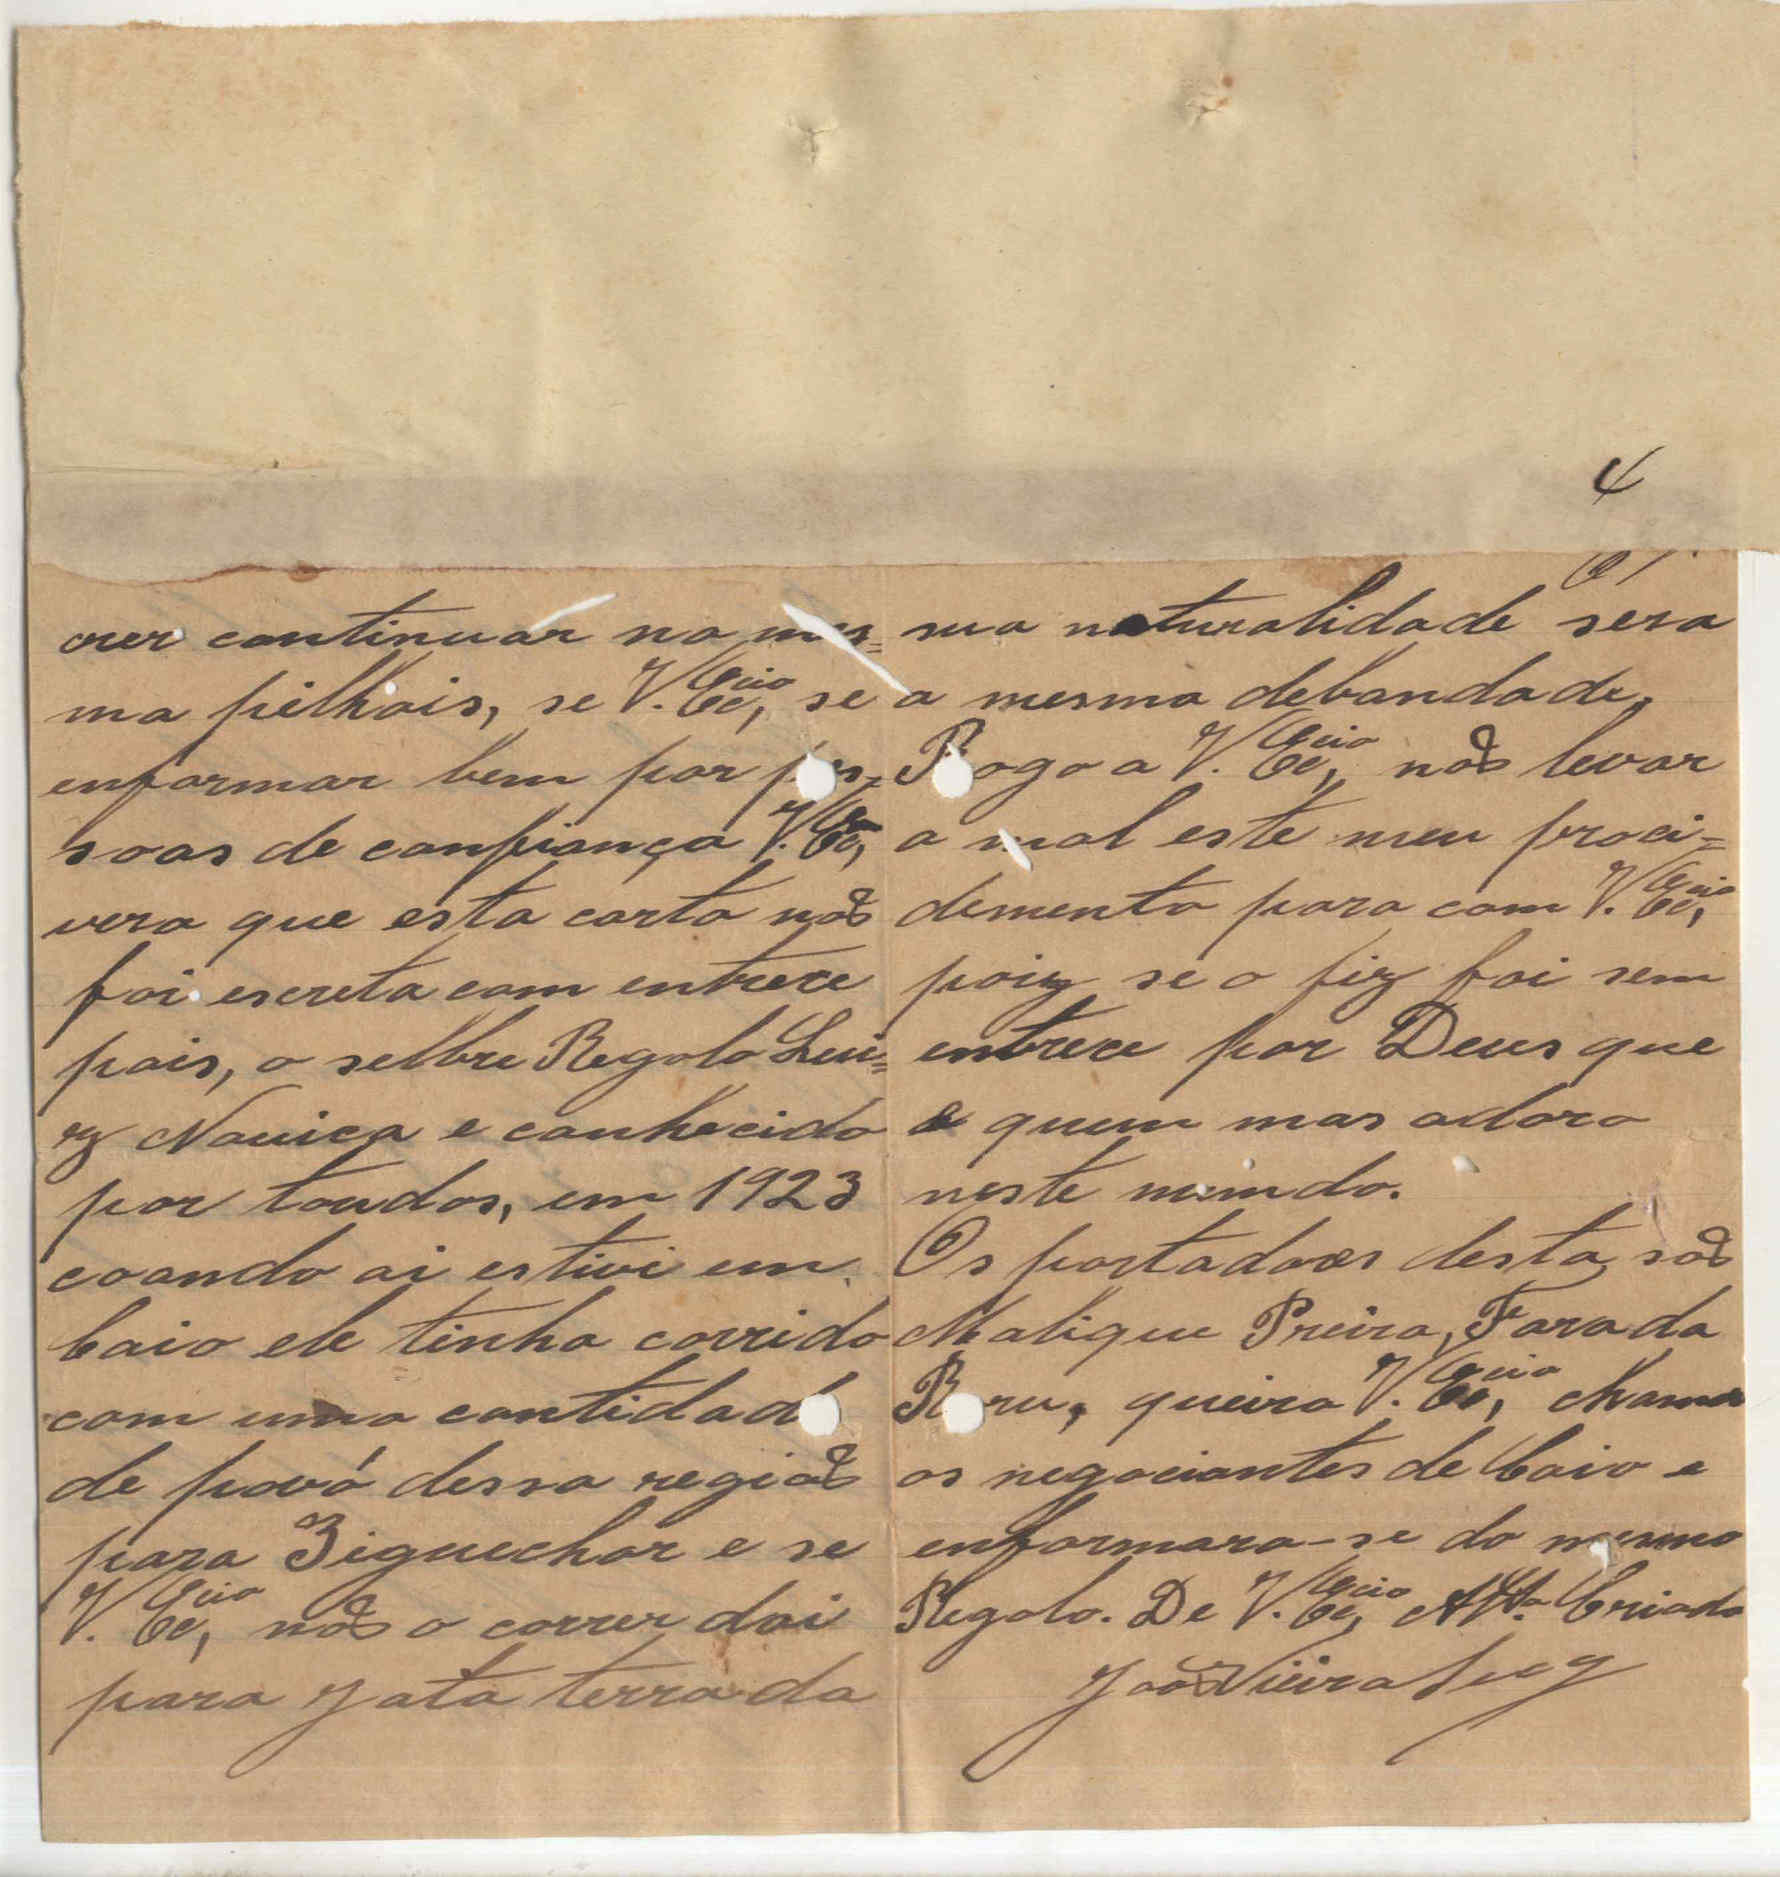 4
crer continuar na mes=
ma pilhais, se V. Ecia, se
enformar bem por pes=
soas de confiança V. Ecia,
vera que esta carta não
foi escreta com entrece
pois, o selbre Regolo Lui=
z Nauica e conhecido
por toudos, em 1923
coando ai estivi em
Caio ele tinha corrido
com uma cantidad
de povó dessa região
para Ziguechor e se
V. Ecia, não o correr dai
para Jata terra da
sua naturalidade sera
a mesma debandade.
Rogo a V. Ecia, não levar
a mal este meu proci=
demento para com V. Ecia,
poiz se o fiz foi sem
entrece por Deus que
e quem mas adoro
neste mundo.
Os portadores desta são
Malique Preira, Farada
B ru, queira V. Ecia, chamar
os negociantes de Caio e
enformara-se do mesmo
Regolo. De V. Ecia, Atto Criado
João Vieira